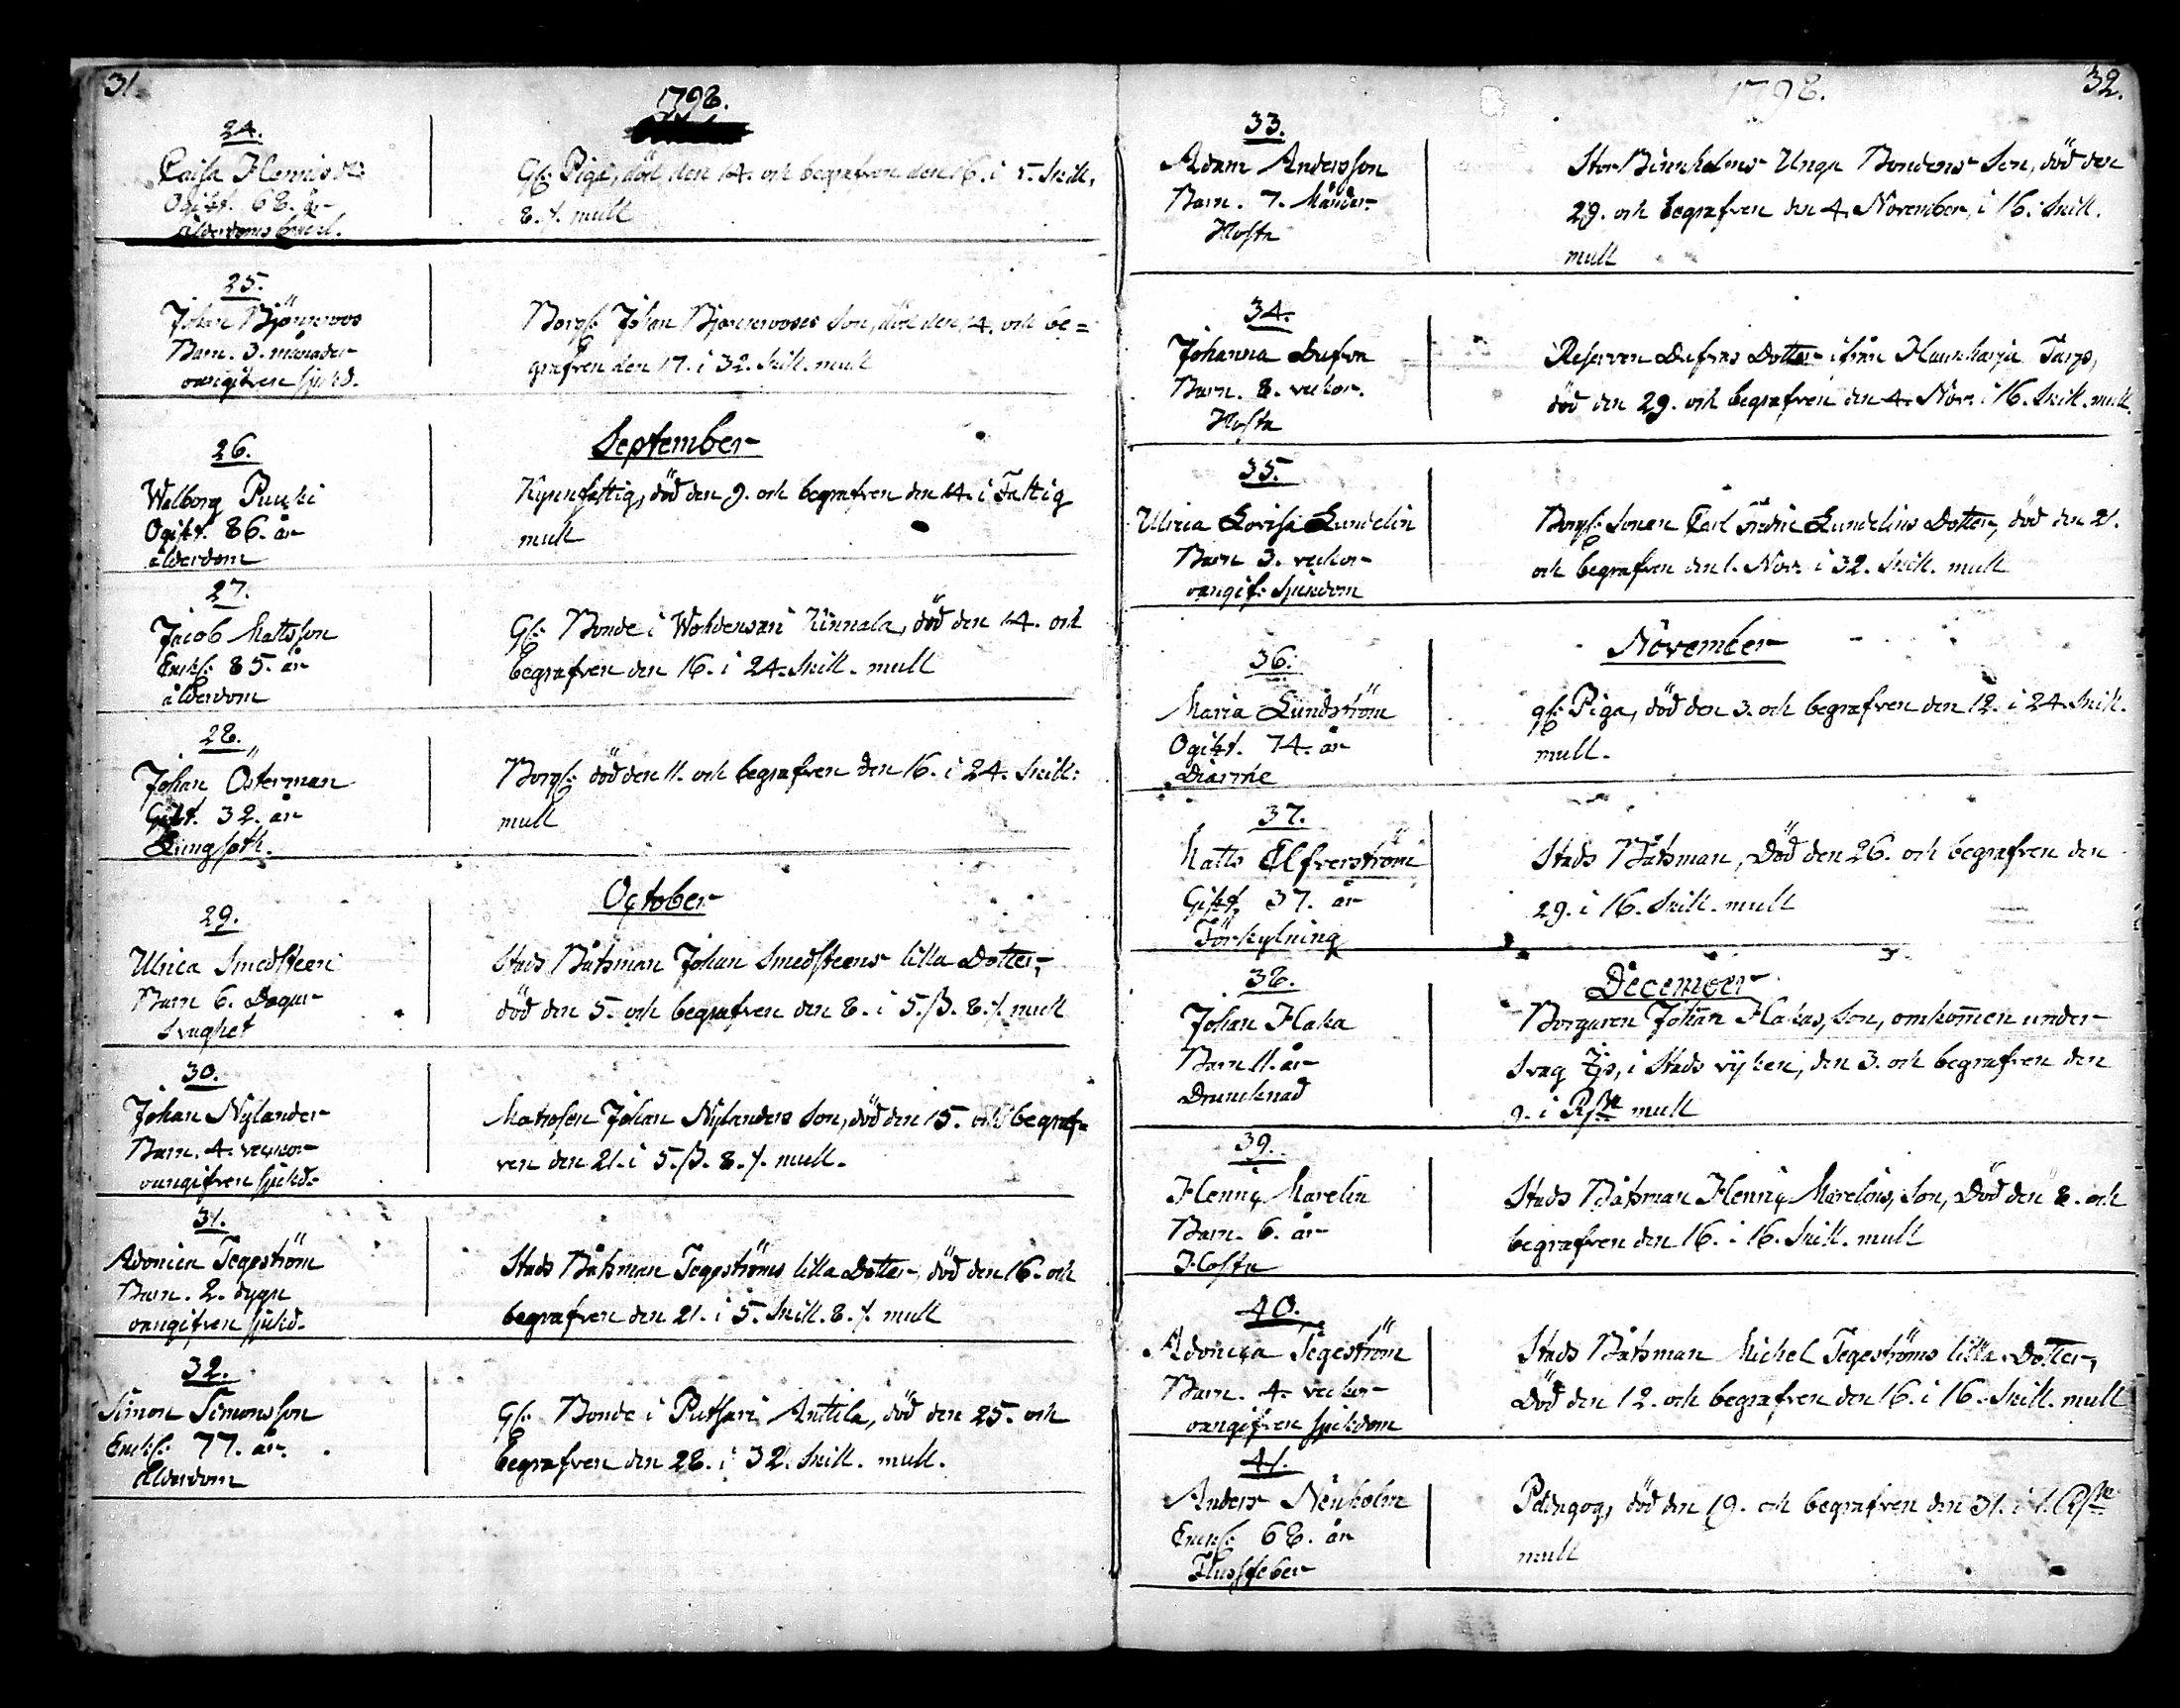 31.
1798.
24.
Caisa
Ogift. 68. år
ålderdoms
Gl: Piga, död den 14. och begrafven den 16. i 5. Skill.
8. /. mull
25.
Johan Björnroos
Barn. 3. månader
oangifven sjukd.
Borg: Johan Björnrooses Son, död den 14. och be=
grafven den 17. i 32. Skill. mull
September
26.
Walborg Puuski
Ogift. 86. år
ålderdom
Kyrnfattig, död den 9. och begrafven den 14. i Fattig
mull
27.
Jacob Mattsson
Enkl: 85. år
ålderdom
Gl: Bonde i Wohdensari Kinnala, död den 14. och
begrafven den 16. i 24. Skill. mull
28.
Johan Österman
Gift. 32. år
Lungsoth.
Borg: död den 11. och begrafven den 16. i 24. Skill:
mull
October
29.
Ulrica Smedsteen
Barn 6. Dagar
Svaghet
Stads Båtsman Johan Smedsteens lilla Dotter,
död den 5. och begrafven den 8. i 5. β. 8. /. mull
30.
Johan Nylander
Barn. 4. veckor
oangifven sjukd.
Matrosen Johan Nylanders Son, död den 15. och begraf=
ven den 21. i 5. β. 8. /. mull.
31.
Adonica Tegeström
Barn. 2. dygn
oangifven sjukd.
Stads Båtsman Tegeströms lilla Dotter, död den 16. och
begrafven den 21. i 5. Skill. 8. /. mull
32.
Simon Simonsson
Enkl: 77. år.
Ålderdom
Gl: Bonde i Putsari Anttila, död den 25. och
begrafven den 28. i 32. Skill. mull.
32.
1798.
33.
Adam Andersson
Barn. 7. Månder
Hosta
Stor Binnholms Unga Bondens Son, död den
29. och begrafven den 4. November, i 16. Skill.
mull
34.
Johanna Dufva
Barn. 8. veckor.
Hosta
Reserven Dufvas Dotter ifrån Haunharju Torp,
död den 29. och begrafven den 4. Nov: i 16. Skill. mull.
35.
Ulrica Lovisa Lundelin
Barn 3. veckor
oangif: Sjukdom
Borg: Sonen Carl Fredric Lundelins Dotter, död den 21.
och begrafven den 1. Nov: i 32. Skill. mull
November
36.
Maria Lundström
Ogift. 74. år
Diarrhe
gl: Piga, död den 3. och begrafven den 12. i 24. Skill.
mull.
37.
Matts Elfverström
Gift. 37. år
Förkylning
Stads Båtsman, Död den 26. och begrafven den
29. i 16. Skill. mull
December
38.
Johan Haka
Barn 11. år
Druncknad
Borgaren Johan Hakas, Son, omkom̄en under
svag Ijs, i Stads vijken, den 3. och begrafven den
9. i Rβr mull
39.
Henric Marelin
Barn. 6. år
Hosta
Stads Båtsman Henric Marelins, Son, Död den 8. och
begrafven den 16. i 16. Skill. mull
40.
Adonica Tegeström
Barn. 4. veckor
oangifven sjukdom
Stads Båtsman Michel Tegeströms lilla Dotter,
Död den 12. och begrafven den 16. i 16. Skill. mull
41.
Anders Nenholm
Enkl: 68. år
Flussfeber
Pedagog, död den 19. och begrafven den 31. i 1. Rβr
mull